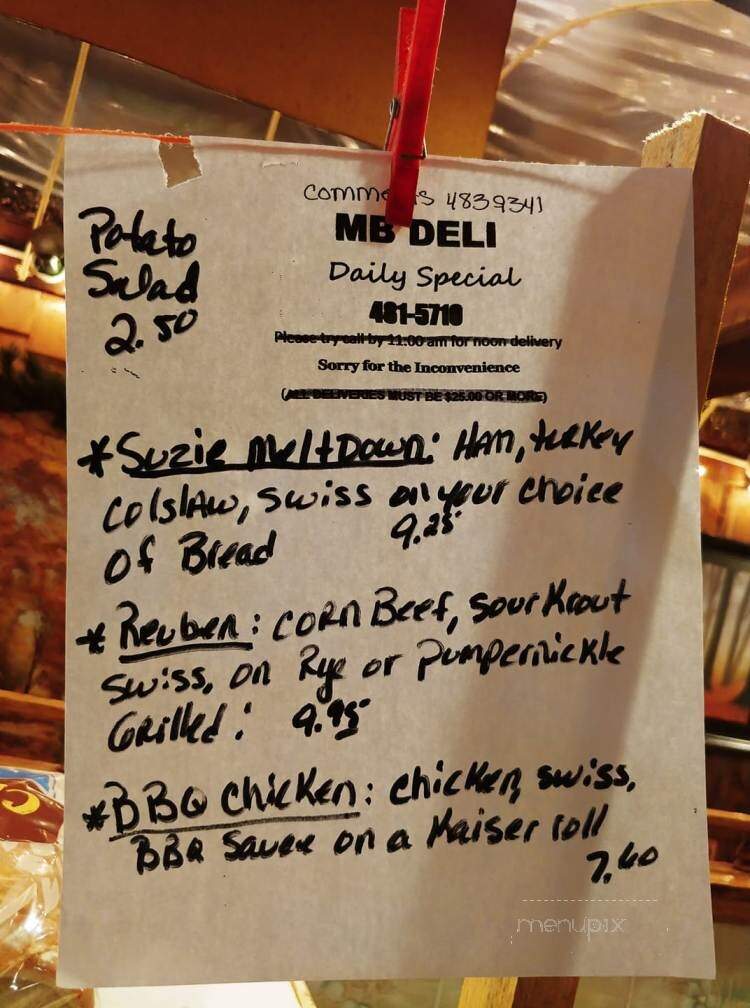 Potato
Salad
2.50
Comments 4839341
MB DELI
Daily Special
481-5710
Please try call by 11:00 am for noon delivery
Sorry for the Inconvenience
(ALL DELIVERIES MUST BE $25.00 OR MORE)
*Suzie MeltDown: HAM, turkey
Colslaw, Swiss on your choice
Of Bread 9.25
*Reuben: CORN Beef, Sour Krout
Swiss, on Rye or Pumpernickle
Grilled: 9.95
*BBQ Chicken: Chicken, Swiss,
BBQ Sauce on a Kaiser roll
7.60
menupix